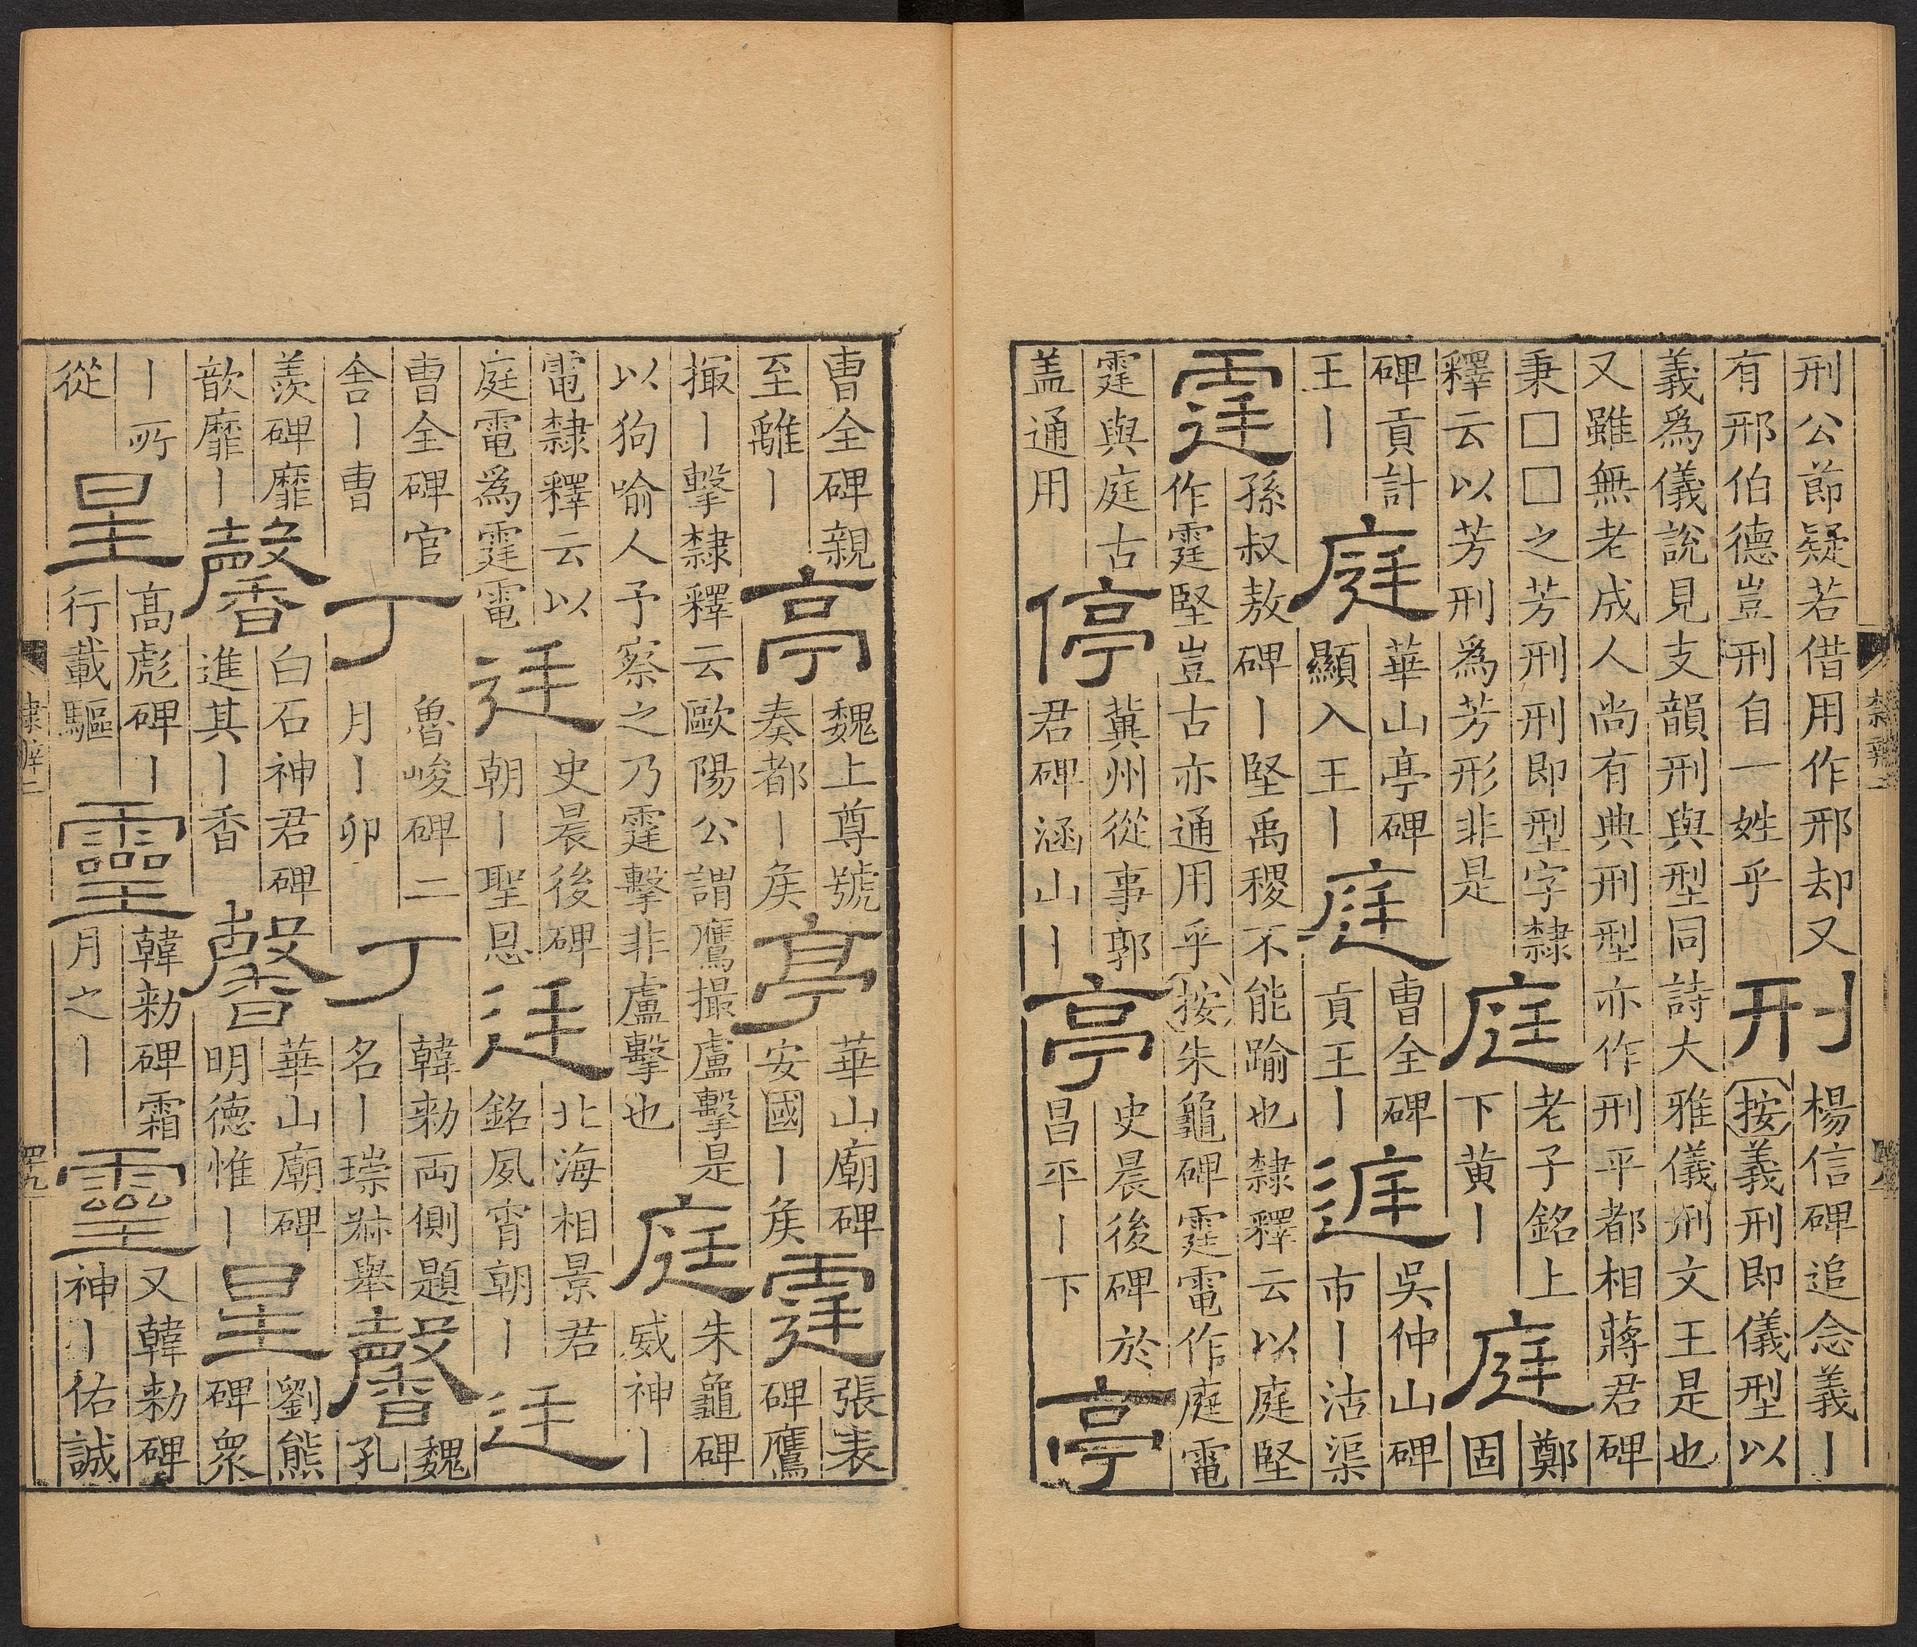 刑公節疑若借用作邢却又
有邢伯德豈刑自一姓乎
刑
楊信碑追念義丨
按義刑即儀型以
義爲儀說見支韻刑與型同詩大雅儀刑文王是也
又雖無老成人尚有典刑刑型亦作刑平都相蔣君碑
秉□□之芳刑刑即型字隸
釋云以芳刑爲芳形非是
庭
老子銘上
下黄丨
庭
鄭
固
碑貢計
王丨
庭
華山亭碑
顯入王丨
庭
曹全碑
貢王丨
吳仲山碑
市丨沽渠
霆
孫叔敖碑丨堅禹稷不能踰也隸釋云以庭堅
作霆堅豈古亦通用乎按朱龜碑霆電作庭電
霆與庭古
盖通用
停
冀州從事郭
君碑涵山丨
亭
史晨後碑於
昌平丨下
亭
曹全碑親
至離丨
亭
魏上尊號
奏都丨矦
亭
華山廟碑
安國丨矦
霆
張表
碑鷹
撮丨擊隸釋云歐陽公謂鷹撮盧擊是
以狗喻人予察之乃霆擊非盧擊也
庭
朱龜碑
威神丨
電隸釋云以
庭電爲霆電
廷
史晨後碑
朝丨聖恩
廷
北海相景君
銘夙宵朝丨
廷
曹全碑官
舎丨曹
丁
魯峻碑二
月丨卯
丁
韓勑両側題
名丨舉
馨
魏
孔
羨碑靡
歆靡丨
馨
白石神君碑
進其丨香
馨
華山廟碑
明德惟丨
星
劉熊
碑衆
丨所
從
星
高彪碑丨
行載驅
靈
韓勑碑霜
月之丨
靈
又韓勑碑
神丨佑誠
隸辨二
四九